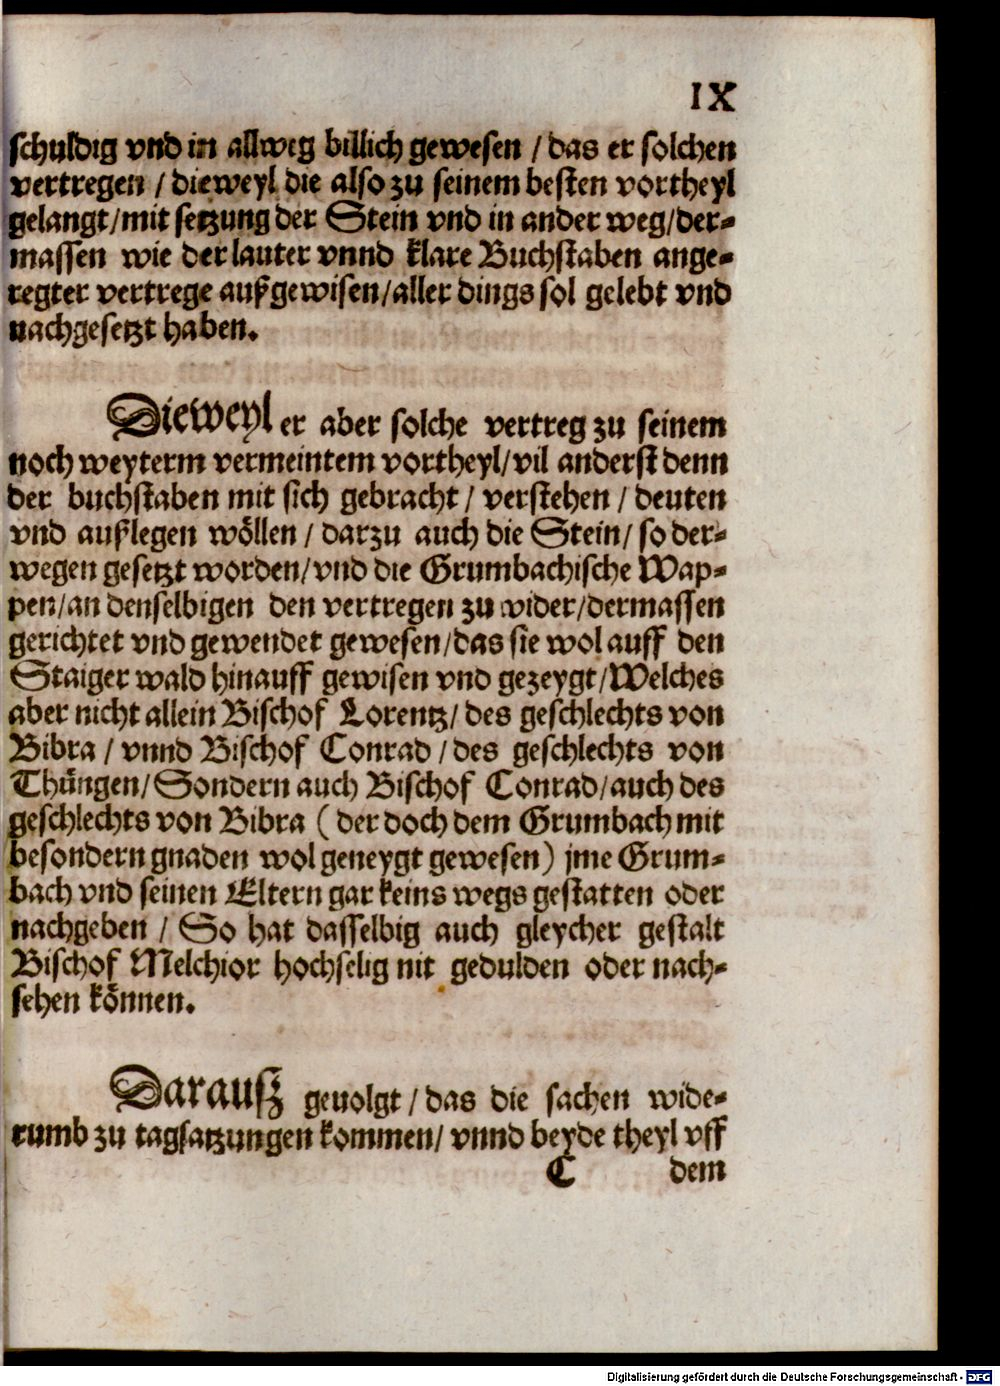 IX
schuldig vnd in allweg billich gewesen / das er solchen
vertregen / dieweyl die also zu seinem besten vortheyl
gelangt/mit setzung der Stein vnd in ander weg/der-
massen wie der lauter vnnd klare Buchstaben ange-
regter vertrege außgewisen/aller dings sol gelebt vnd
nachgesetzt haben.
Dieweyl er aber solche vertreg zu seinem
noch weyterm vermeintem vortheyl/vil anderst denn
der buchstaben mit sich gebracht / verstehen / deuten
vnd außlegen wöllen / darzu auch die Stein/ so der-
wegen gesetzt worden/vnd die Grumbachische Wap-
pen/an denselbigen den vertregen zu wider/dermassen
gerichtet vnd gewendet gewesen/das sie wol auff den
Staiger wald hinauff gewisen vnd gezeygt/Welches
aber nicht allein Bischof Lorentz/ des geschlechts von
Bibra / vnnd Bischof Conrad / des geschlechts von
Thüngen/Sondern auch Bischof Conrad/auch des
geschlechts von Bibra ( der doch dem Grumbach mit
besondern gnaden wol geneygt gewesen) jme Grum-
bach vnd seinen Eltern gar keins wegs gestatten oder
nachgeben / So hat dasselbig auch gleycher gestalt
Bischof Melchior hochselig nit gedulden oder nach-
sehen können.
Darausz geuolgt / das die sachen wide-
rumb zu tagsatzungen kommen/ vnnd beyde theyl vff
C dem
Digitalisierung gefördert durch die Deutsche Forschungsgemeinschaft - DFG